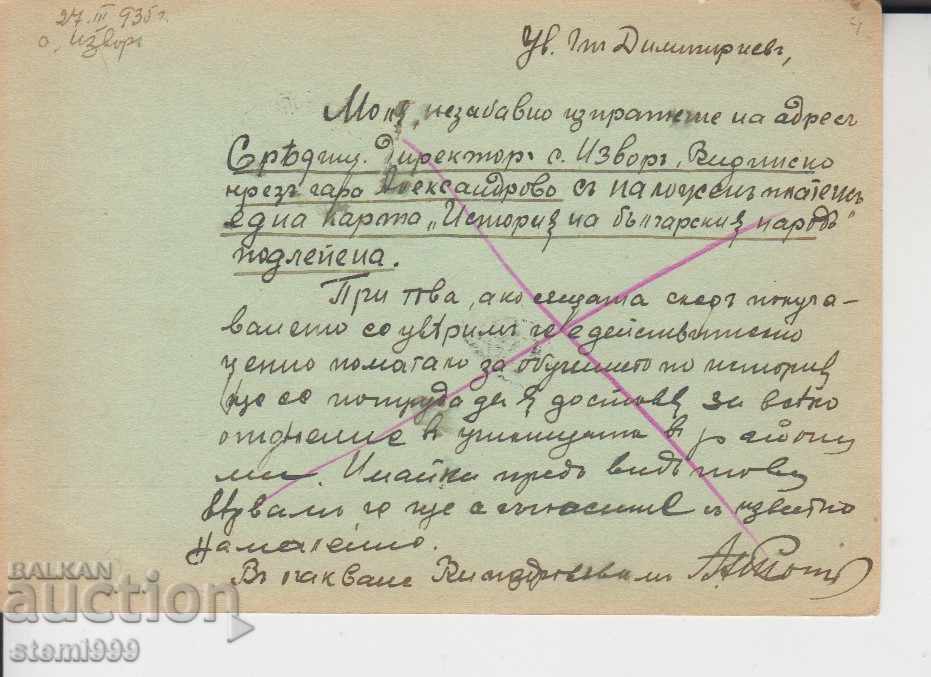 27. III 935 г.
с. Изворъ
Ув. Г-нъ Димитриевъ,
Моля, незабавно изпратете на адресъ
Срѣдищ. Директоръ с. Изворъ, Видинско
презъ гара Александрово съ наложенъ платежъ
една карта „История на българския народъ“
подлепена.
При това, ако следъ получа-
ването се увѣримъ че е действително
ценно помагало за обучението по история
ще се потрудя да я доставя за всѣко
отдѣление въ училищата въ района
ми. Имайки предъ видъ това
вѣрвамъ че ще се съгласите съ известно
намаление.
Въ очакване
BALKAN
auction
stemi999